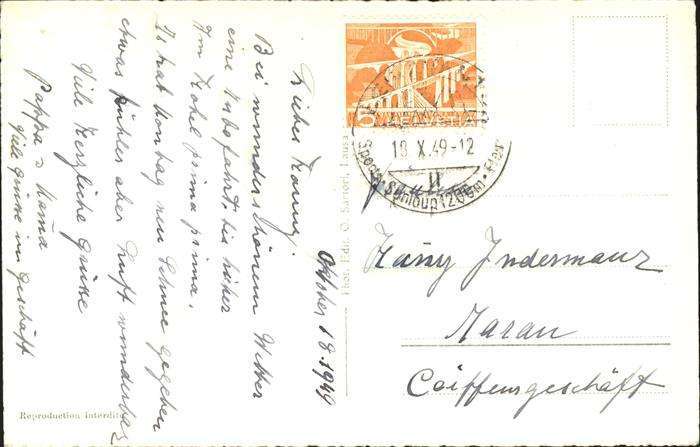 Oktober 18. 1949
Lieber Hanny.
Bei wunderschönem Wetter
eine Autofahrt bis hieher
Im Hotel prima prima.
Es hat Montag neu Schnee gegeben
etwas kühler aber Luft wunderbar
Viele herzliche Grüsse
Pappa & Mama
Viele Grüsse im Geschäft
Reproduction interdite
Phot. Edit. O. Sartori,
5
HELVETIA
18 X.49-12
II
Hanny Indermaur
Aarau
Coiffeurgeschäft